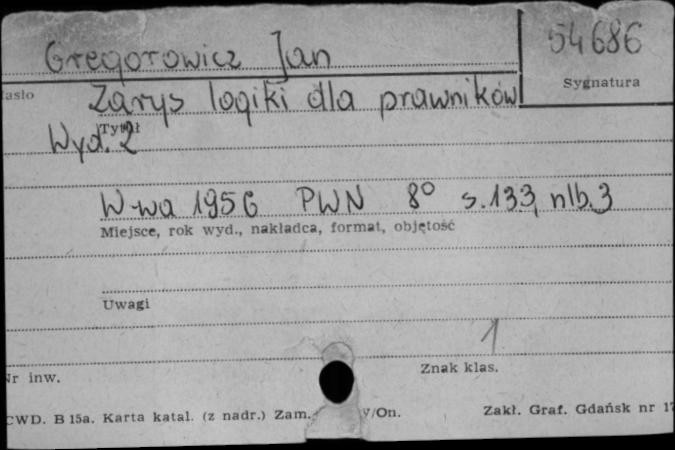 Gregorowicz Jan 54686
asło Sygnatura
Zarys logiki dla prawników
Tytuł
Wyd. 2
W-wa 1956 PWN 8° s.133, nlb.3
Miejsce, rok wyd., nakładca, format, objętość
Uwagi
1
Nr inw. Znak klas.
CWD. B 15a. Karta katal. (z nadr.) Zam. /On. Zakł. Graf. Gdańsk nr 17